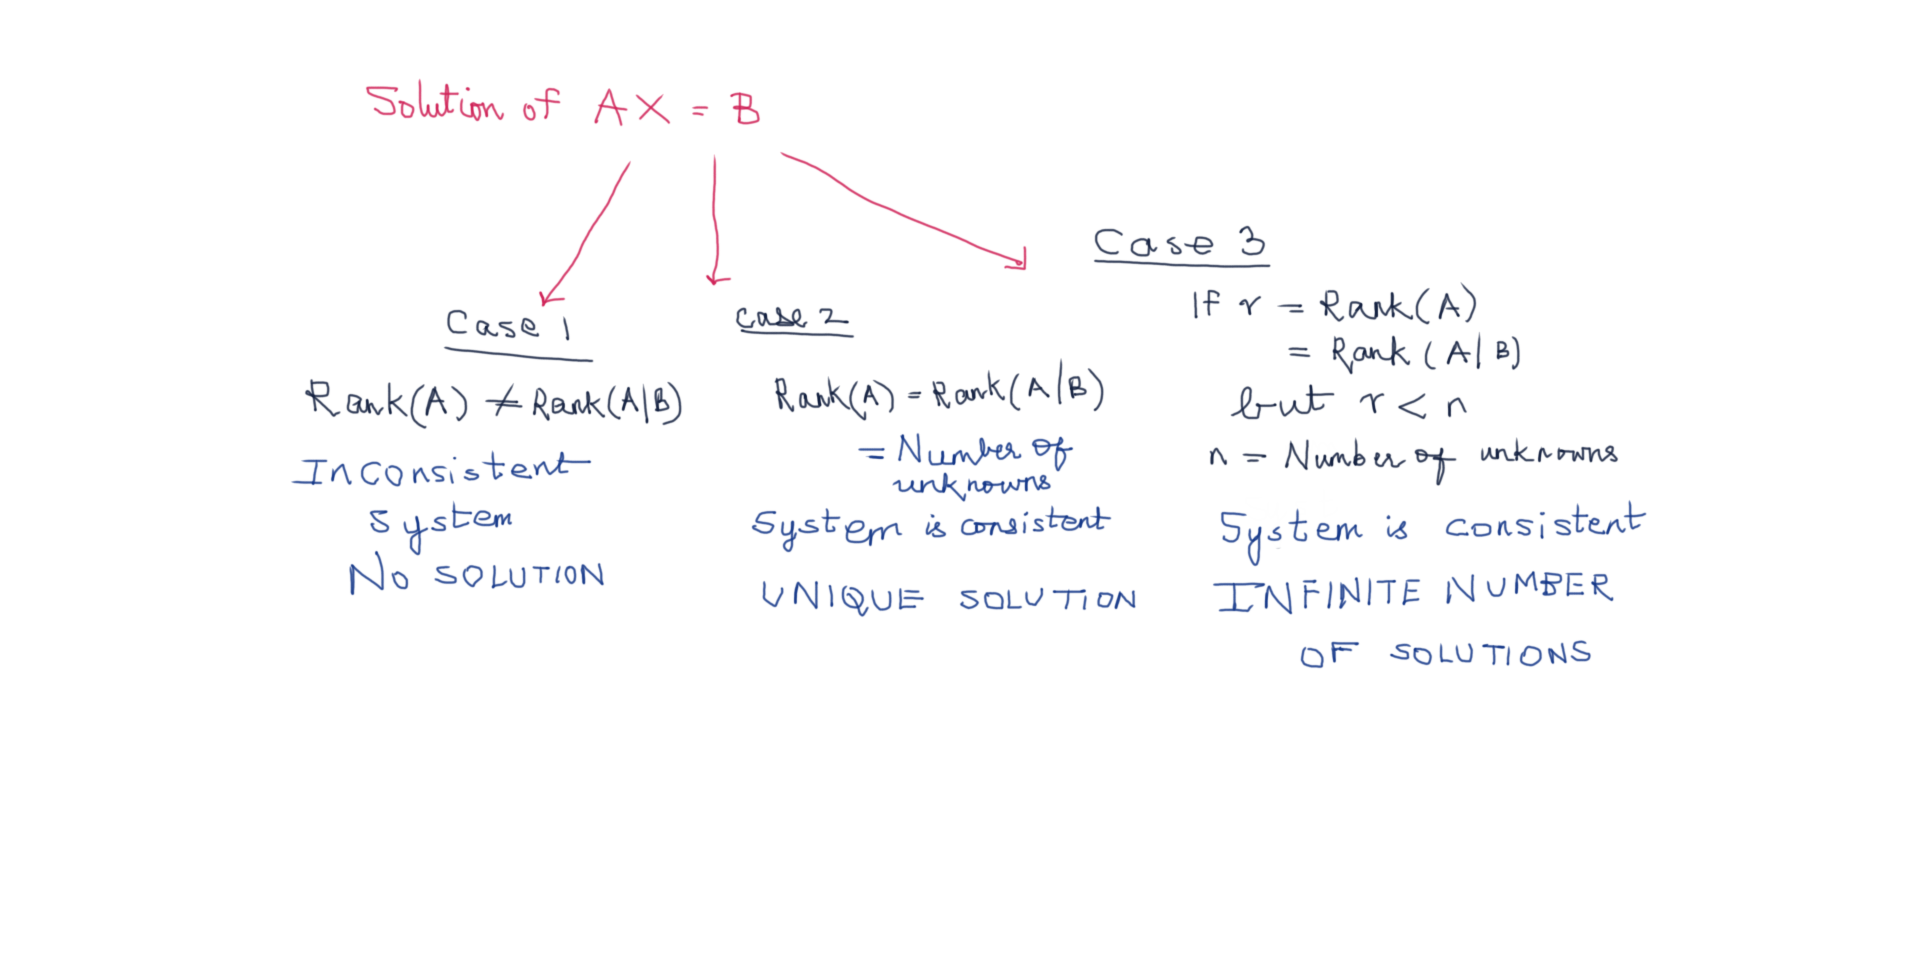 Solution of AX = B
Case 1
Rank(A) ≠ Rank(A|B)
Inconsistent
System
No SOLUTION
case 2
Rank(A) = Rank(A|B)
= Number of
unknowns
System is consistent
UNIQUE SOLUTION
Case 3
If r = Rank(A)
= Rank (A|B)
but r < n
n = Number of unknowns
System is consistent
INFINITE NUMBER
OF SOLUTIONS